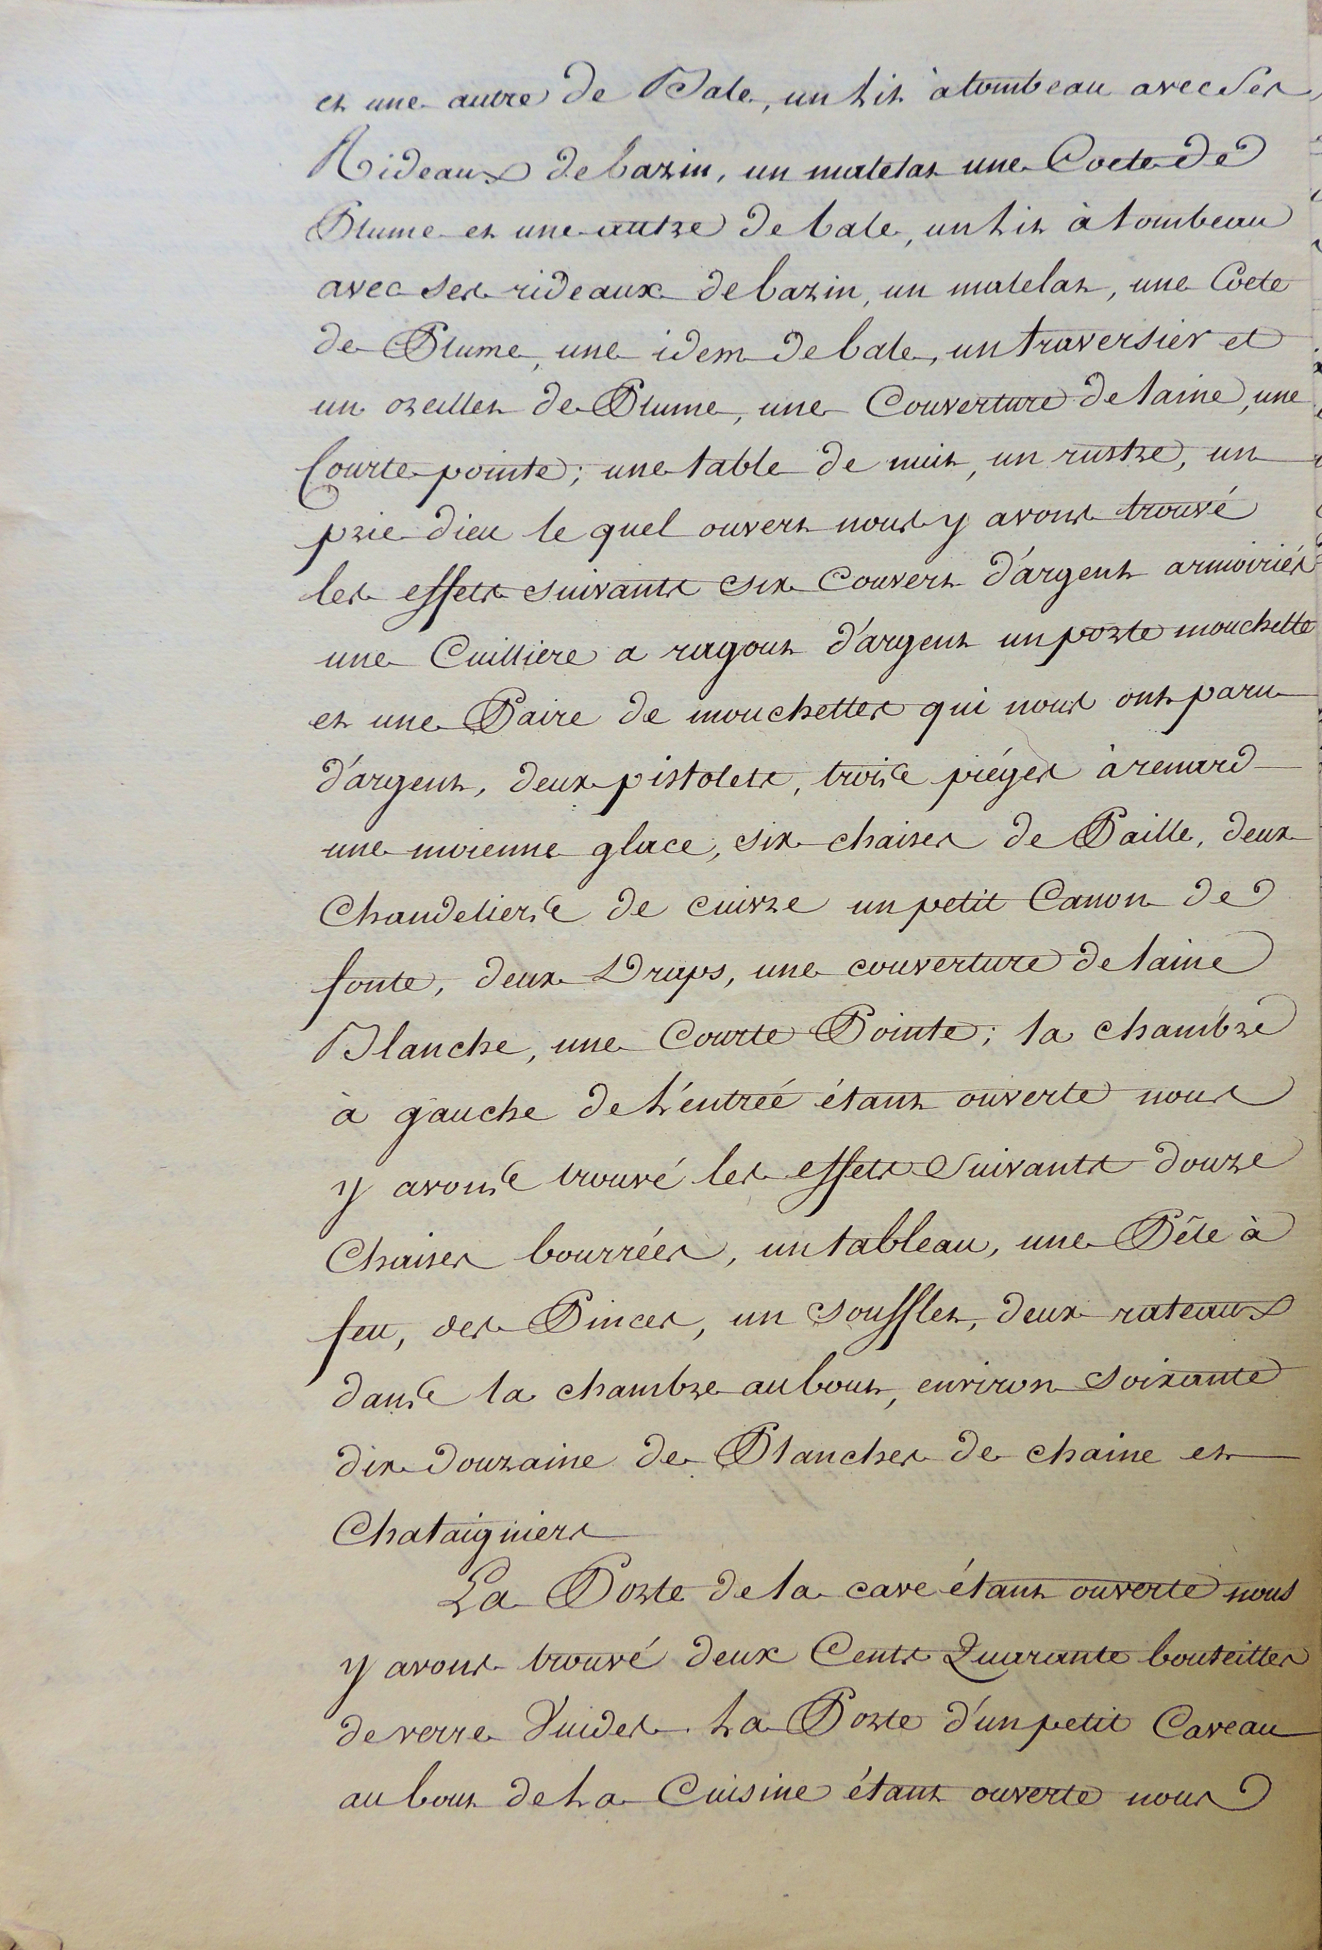 et une autre de Bale, un Lit à tombeau avec Ses
Rideaux de bazin, un matelas une Coete de
Plume et une autre de bale, un Lit à tombeau
avec ses rideaux de bazin, un matelas, une Coete
de Plume, une idem de bale, un traversier et
un oreiller de Plume, une Couverture de laine, une
Courte pointe; une table de nuit, un rustre, un
prie dieu le quel ouvert nous y avons trouvé
les effets suivants six Couvert d'argent armoiriés
une Cuilliere a ragout d'argent un porte mouchette
et une Paire de mouchettes qui nous ont paru
d'argent, deux pistolets, trois piéges à renard
une moienne glace, six chaises de Paille, deux
Chandeliers de cuivre un petit Canon de
fonte, deux Draps, une couverture de laine
Blanche, une Courte Pointe; la chambre
à gauche de L'entreé étant ouverte nous
y avons trouvé les effets Suivants douze
Chaises bourrées, un tableau, une Pêle à
feu, des Pinces, un Soufflet, deux rateaux
dans la chambre au bout, environ Soixante
dix douzaine de Planches de chaine et
Chataigniers
La Porte de la cave étant ouverte nous
y avons trouvé deux Cents Quarante bouteilles
de verre Vuides. La Porte d'un petit Caveau
au bout de La Cuisine étant ouverte nous